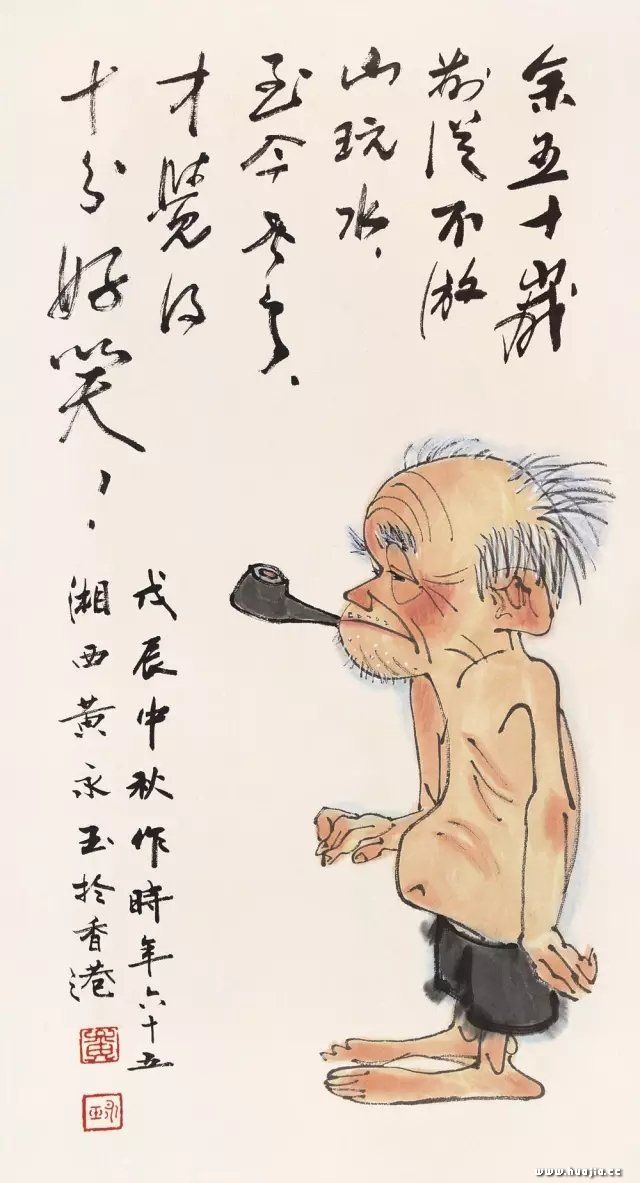 余五十歲
前從不游
山玩水、
至今老了、
才覺得
十分好笑、、
戊辰中秋作時年六十五
湘西黄永玉於香港
黄
永玉
www.huajia.cc